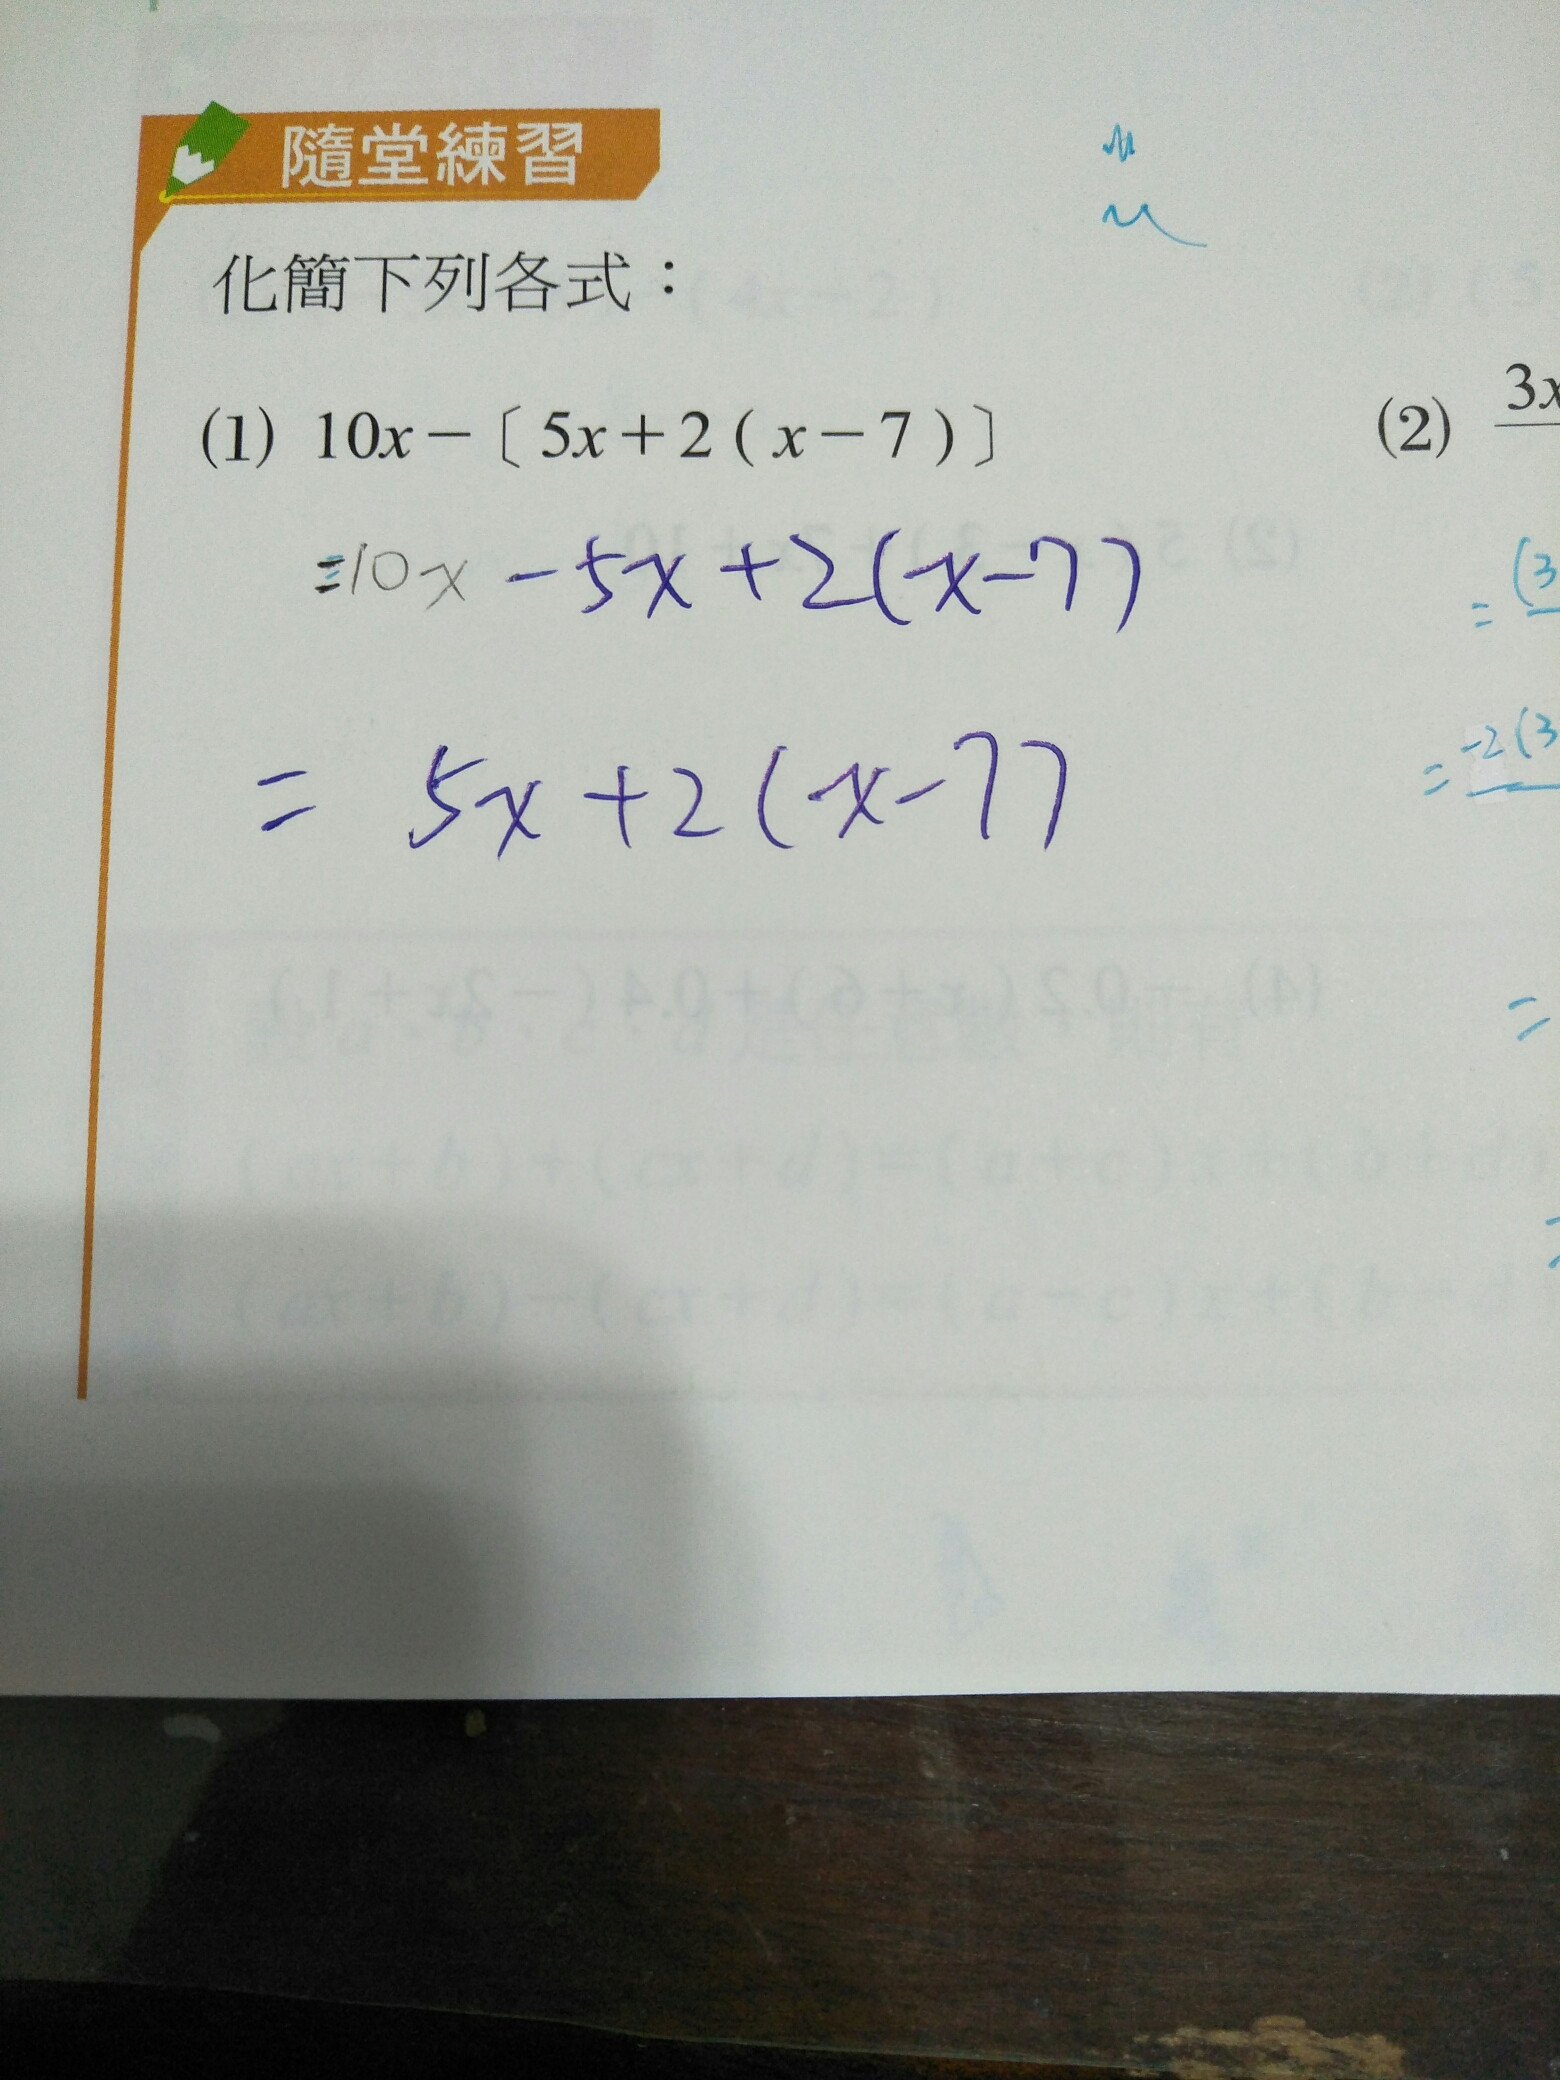 隨堂練習
化簡下列各式：
(1) 10x－〔5x＋2(x－7)〕
(2) 3x
=10x -5x+2(x-7)
= (3
= 5x+2(x-7)
= -2(3
=